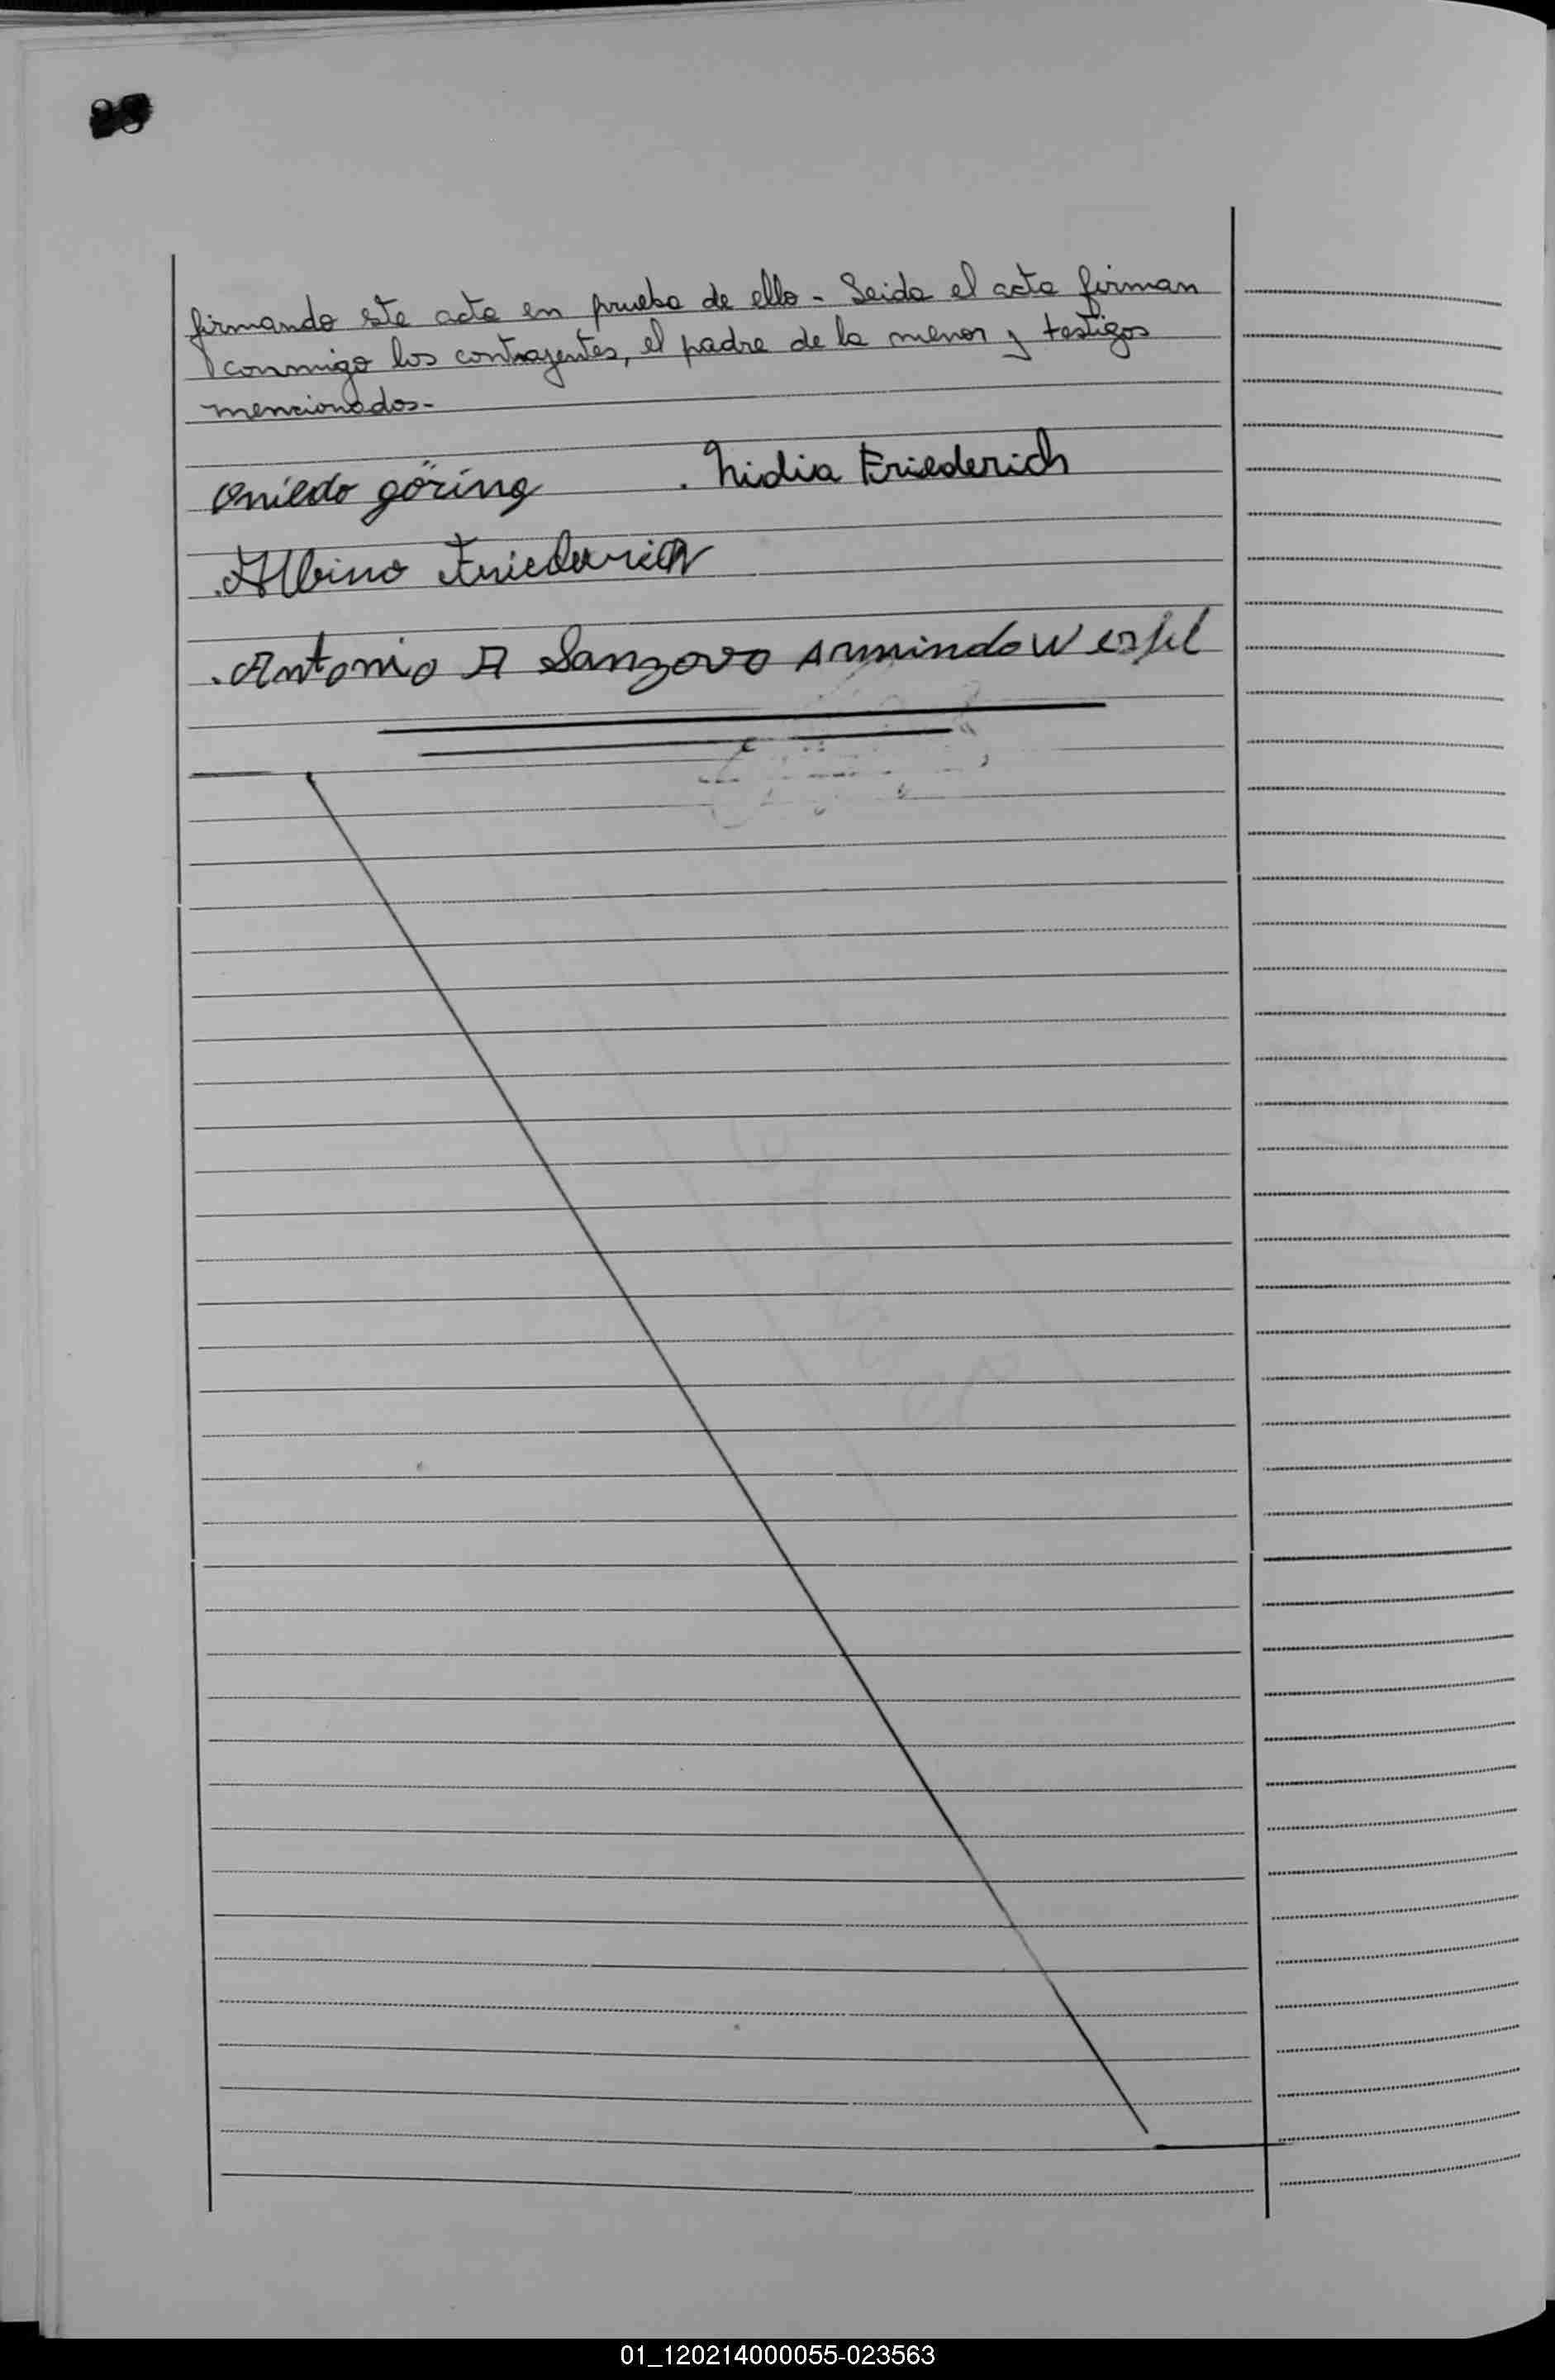 28
firmando este acta en prueba de ello - Leida el acta firman
conmigo los contrayentes, el padre de la menor y testigos
mencionados-
Onildo göring . Nidia Friederich
.Albino Friederich
.Antonio A Sanzovo Armindo Werfel
01_120214000055-023563